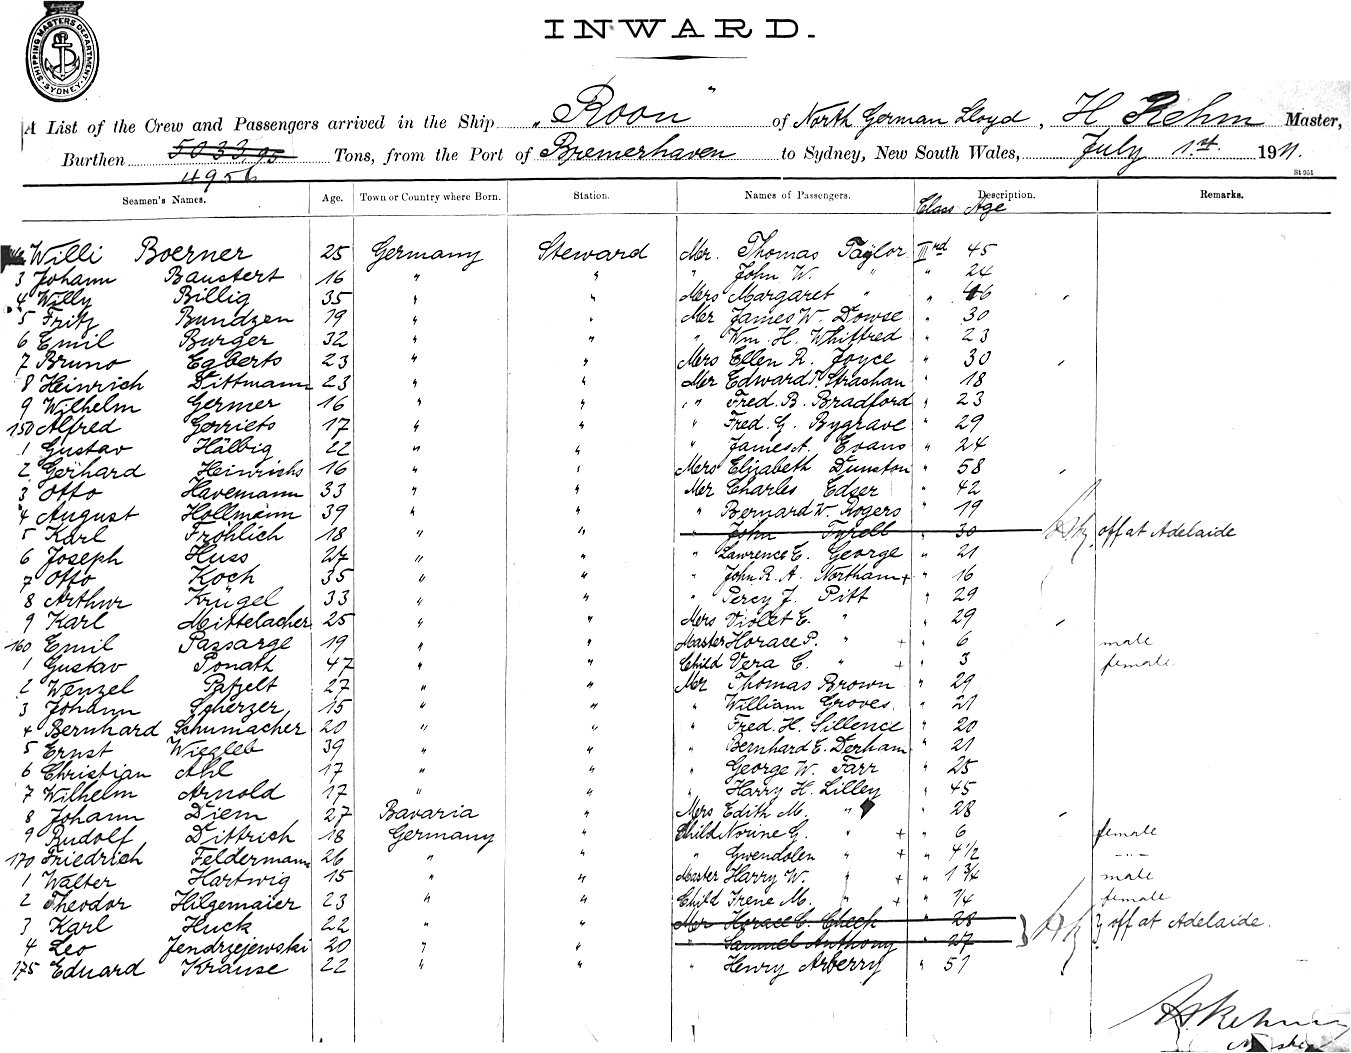 SHIPPING MASTERS DEPARTMENT SYDNEY
INWARD.
A List of the Crew and Passengers arrived in the Ship "Roon" of North German Lloyd, H Rehm Master,
Burthen 5033,95 Tons, from the Port of Bremerhaven to Sydney, New South Wales, July 1.st 1911.
4956
St 951
Seamen's Names. Age. Town or Country where Born. Station. Names of Passengers. Description. Remarks.
Class Age
Willi Boerner 25 Germany Steward Mr. Thomas Taylor IIIrd 45
3 Johann Baustert 16 " " " John W. " " 24
4 Willy Billig 35 " " Mrs Margaret " " 46
5 Fritz Bundzen 19 " " Mr James W. Dowse " 30
6 Emil Burger 32 " " " Wm. H. Whiffred " 23
7 Bruno Egberts 23 " " Mrs Ellen R. Joyce " 30
8 Heinrich Dittmann 23 " " Mr Edward T. Strachan " 18
9 Wilhelm Germer 16 " " " Fred. B. Bradford " 23
150 Alfred Gerriets 17 " " " Fred. G. Bygrave " 29
1 Gustav Hälbig 22 " " " James A. Evans " 24
2 Gerhard Heinrichs 16 " " Mrs Elizabeth Dunston " 58
3 Otto Havemann 33 " " Mr Charles Edser " 42
4 August Hollmann 39 " " " Bernard W. Rogers " 19
5 Karl Fröhlich 18 " " " John Tyrell " 30 off at Adelaide
6 Joseph Huss 27 " " " Lawrence E. George " 21
7 Otto Koch 35 " " " John R. A. Northam + " 16
8 Arthur Krügel 33 " " " Percy J. Pitt " 29
9 Karl Mittelacher 25 " " Mrs Violet E. " " 29
160 Emil Passarge 19 " " Master Horace P. " + " 6 male
1 Gustav Ponath 47 " " Child Vera C. " + " 3 female
2 Wenzel Patzelt 27 " " Mr Thomas Brown " 29
3 Johann Scherzer 15 " " " William Groves. " 21
4 Bernhard Schumacher 20 " " " Fred. H. Sillence " 20
5 Ernst Wiegleb 39 " " " Bernhard E. Derham " 21
6 Christian Ahl 17 " " " George W. Farr " 25
7 Wilhelm Arnold 17 " " " Harry H. Lilley " 45
8 Johann Diem 27 Bavaria " Mrs Edith M. " " 28
9 Rudolf Dittrich 18 Germany " Child Norine G. " + " 6 female
170 Friedrich Feldermann 26 " " " Gwendolen " + " 4 1/2 -"-
1 Walter Hartwig 15 " " Master Harry W. " + " 1 3/4 male
2 Theodor Hilgemaier 23 " " Child Irene M. " + " 1/4 female
3 Karl Huck 22 " " Mr Horace C. Check " 28 } off at Adelaide.
4 Leo Jendrzejewski 20 " " " Samuel Anthony " 27
175 Eduard Krause 22 " " " Henry Arberry " 51